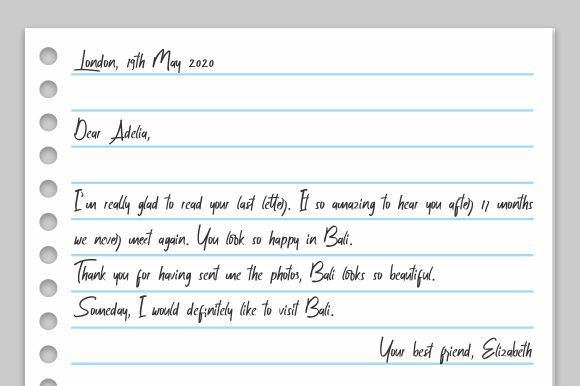 London, 19th May 2020
Dear Adelia,
I'm really glad to read your last letter. It so amazing to hear you after 17 months
we never meet again. You look so happy in Bali.
Thank you for having sent me the photos, Bali looks so beautiful.
Someday, I would definitely like to visit Bali.
Your best friend, Elizabeth